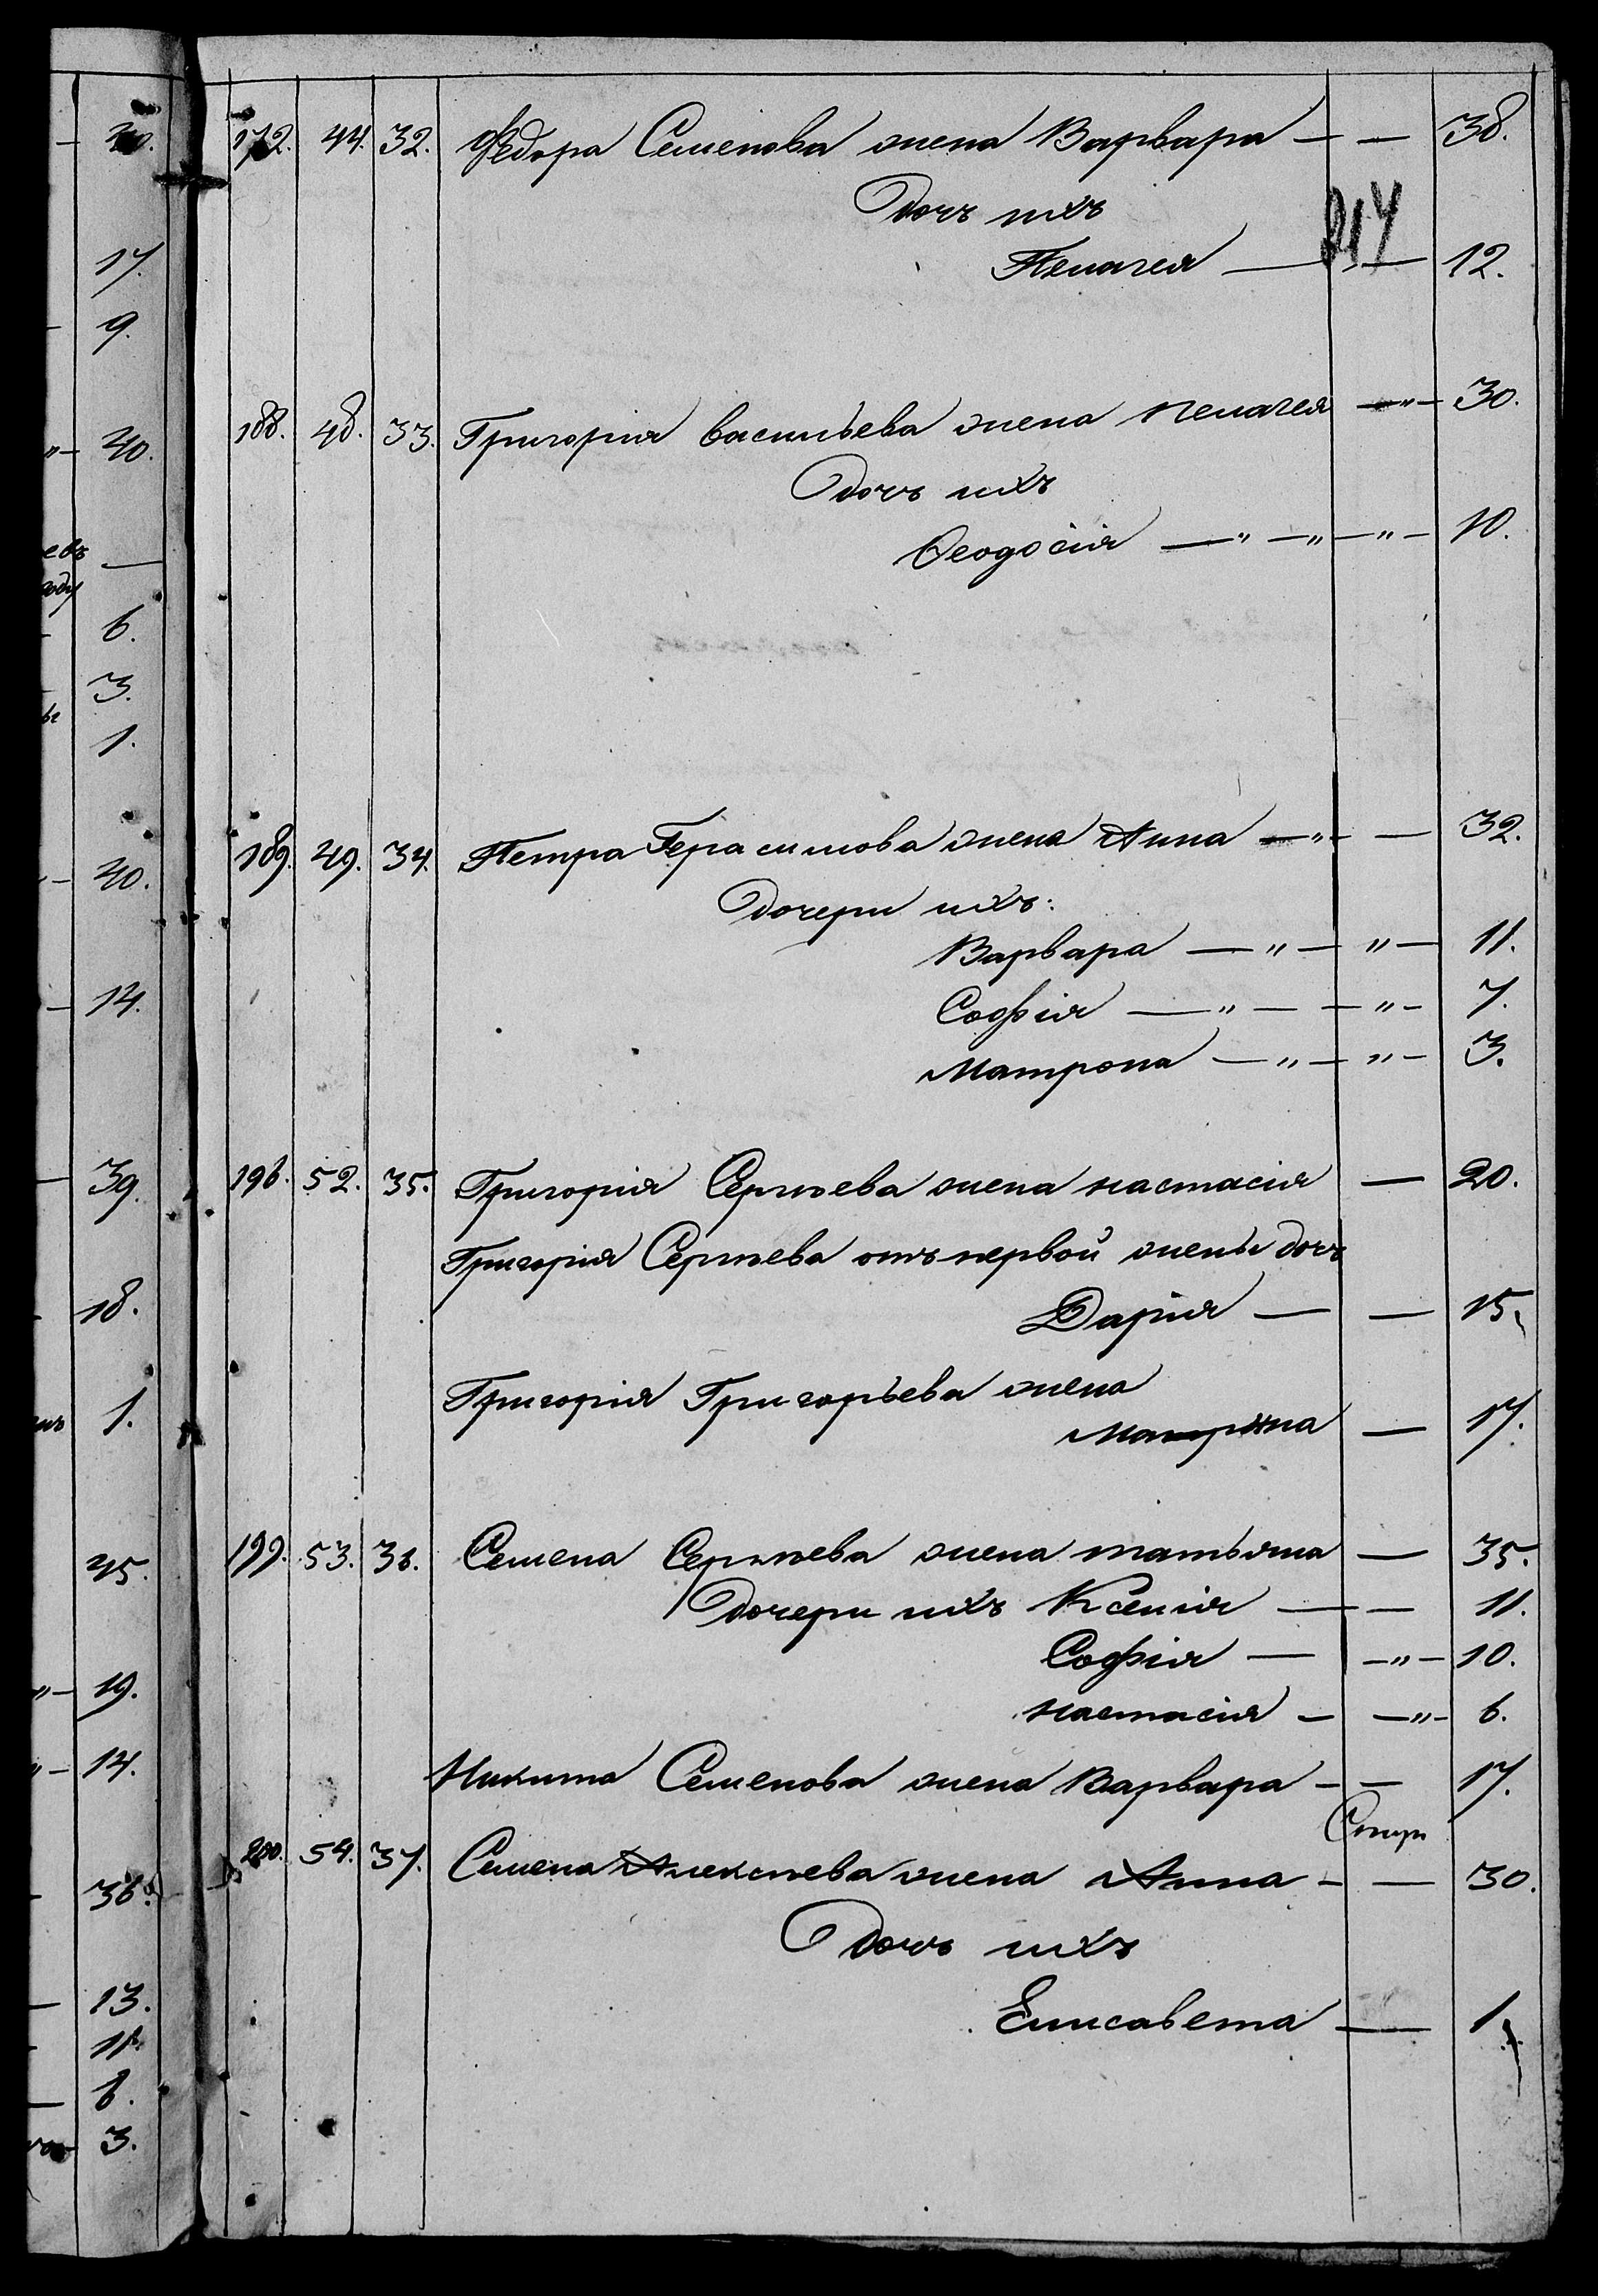 172. 44. 32. Федора Семенова жена Варвара — — 38.
Дочь ихъ
214
Пелагея — — 12.
188. 48. 33. Григорія васильева жена пелагея — „ — 30.
Дочь ихъ
Ѳеодосія — „ — „ — „ — 10.
189. 49. 34. Петра Герасимова жена Анна — „ — — 32.
Дочери ихъ:
Варвара — „ — „ — 11.
Софія — „ — — „ — 7.
Матрона — „ — „ — 3.
196. 52. 35. Григорія Сергѣева жена настасія — 20.
Григорія Сергѣева отъ первой жены дочь
Дарія — — 15.
Григорія Григорьева жена
— 17.
199. 53. 36. Семена Сергѣева жена татьяна — 35.
Дочери ихъ Ксенія — — 11.
Софія — — „ — 10.
настасія — — „ — 6.
Никита Семенова жена Варвара — — 17.
200. 54. 37. Семена Алексѣева жена Анна — — 30.
Дочь ихъ
Елисавета — 1
17.
9.
40.
6.
3.
1.
40.
14.
39.
18.
1.
45.
19.
14.
36.
13.
11.
6.
3.